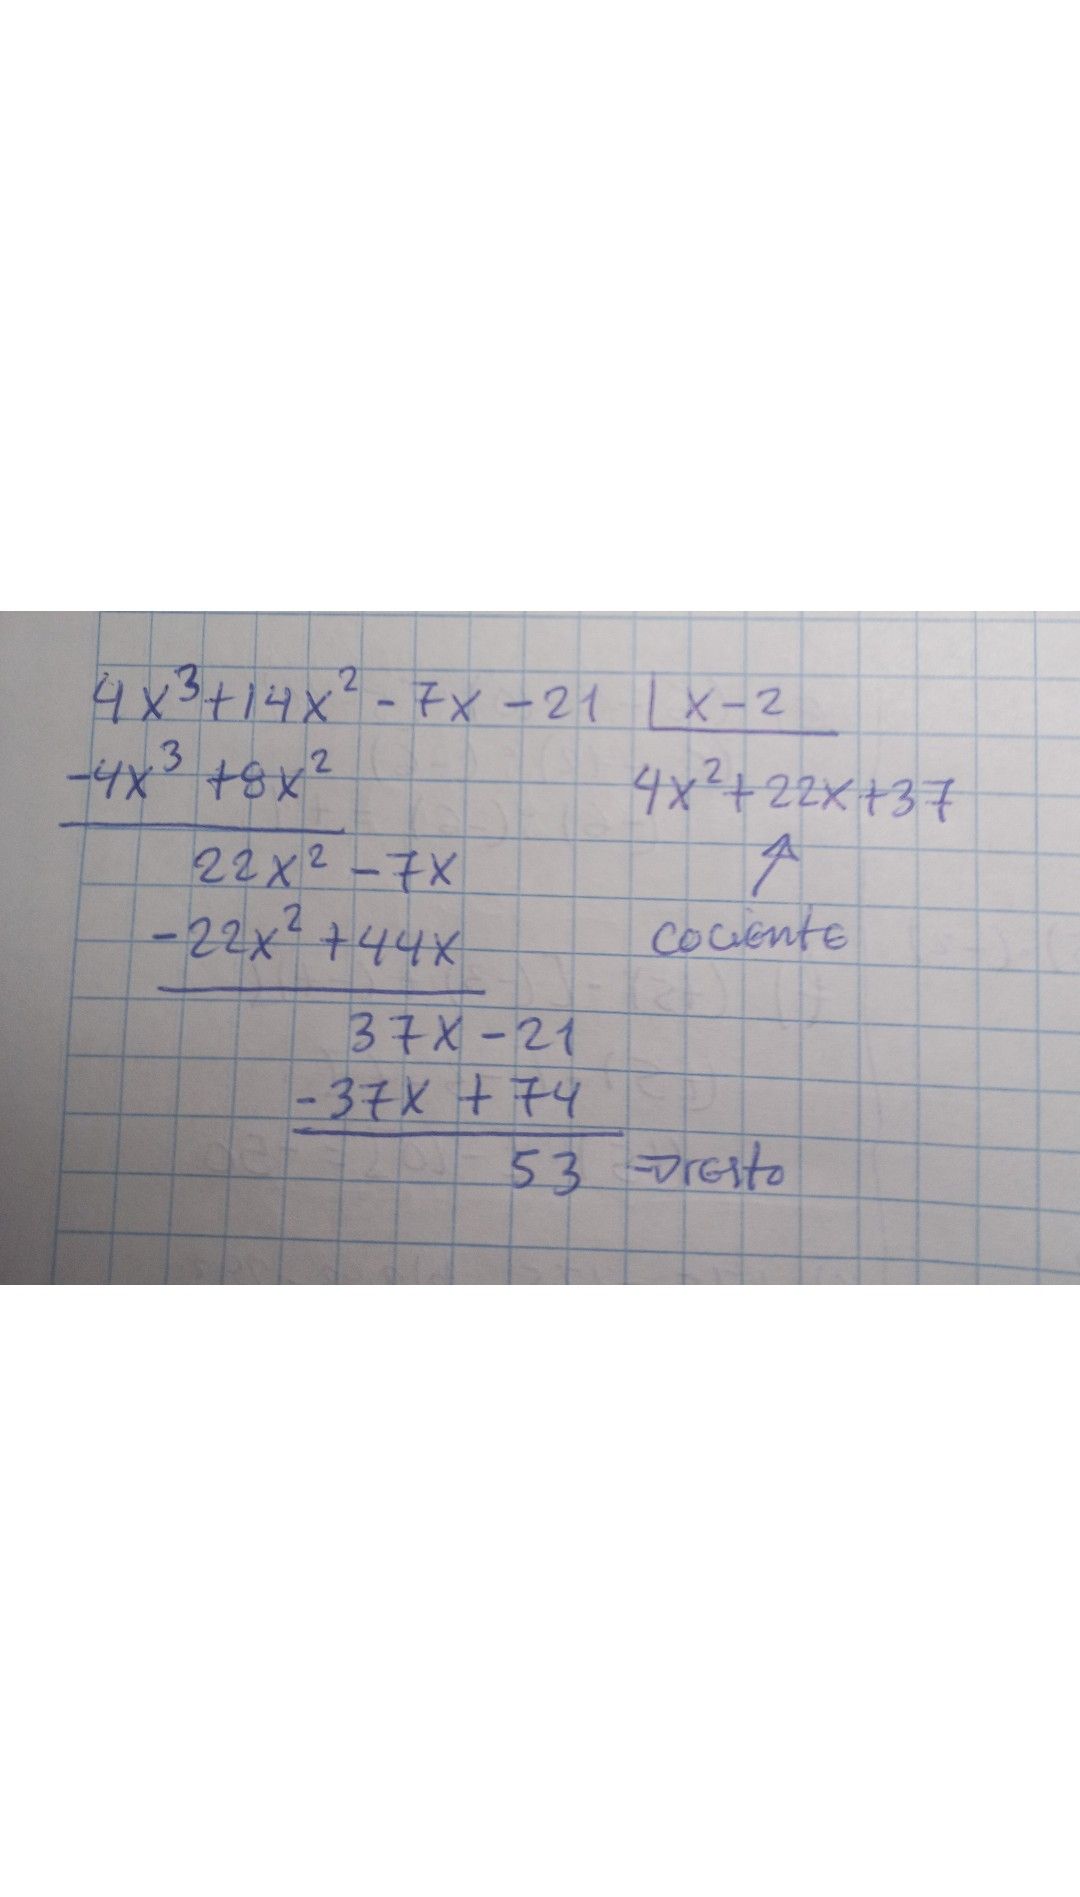 4x³+14x²-7x-21 |x-2
-4x³ +8x² 4x²+22x+37
22x²-7x
-22x²+44x cociente
37x-21
-37x+74
53 ⇒resto